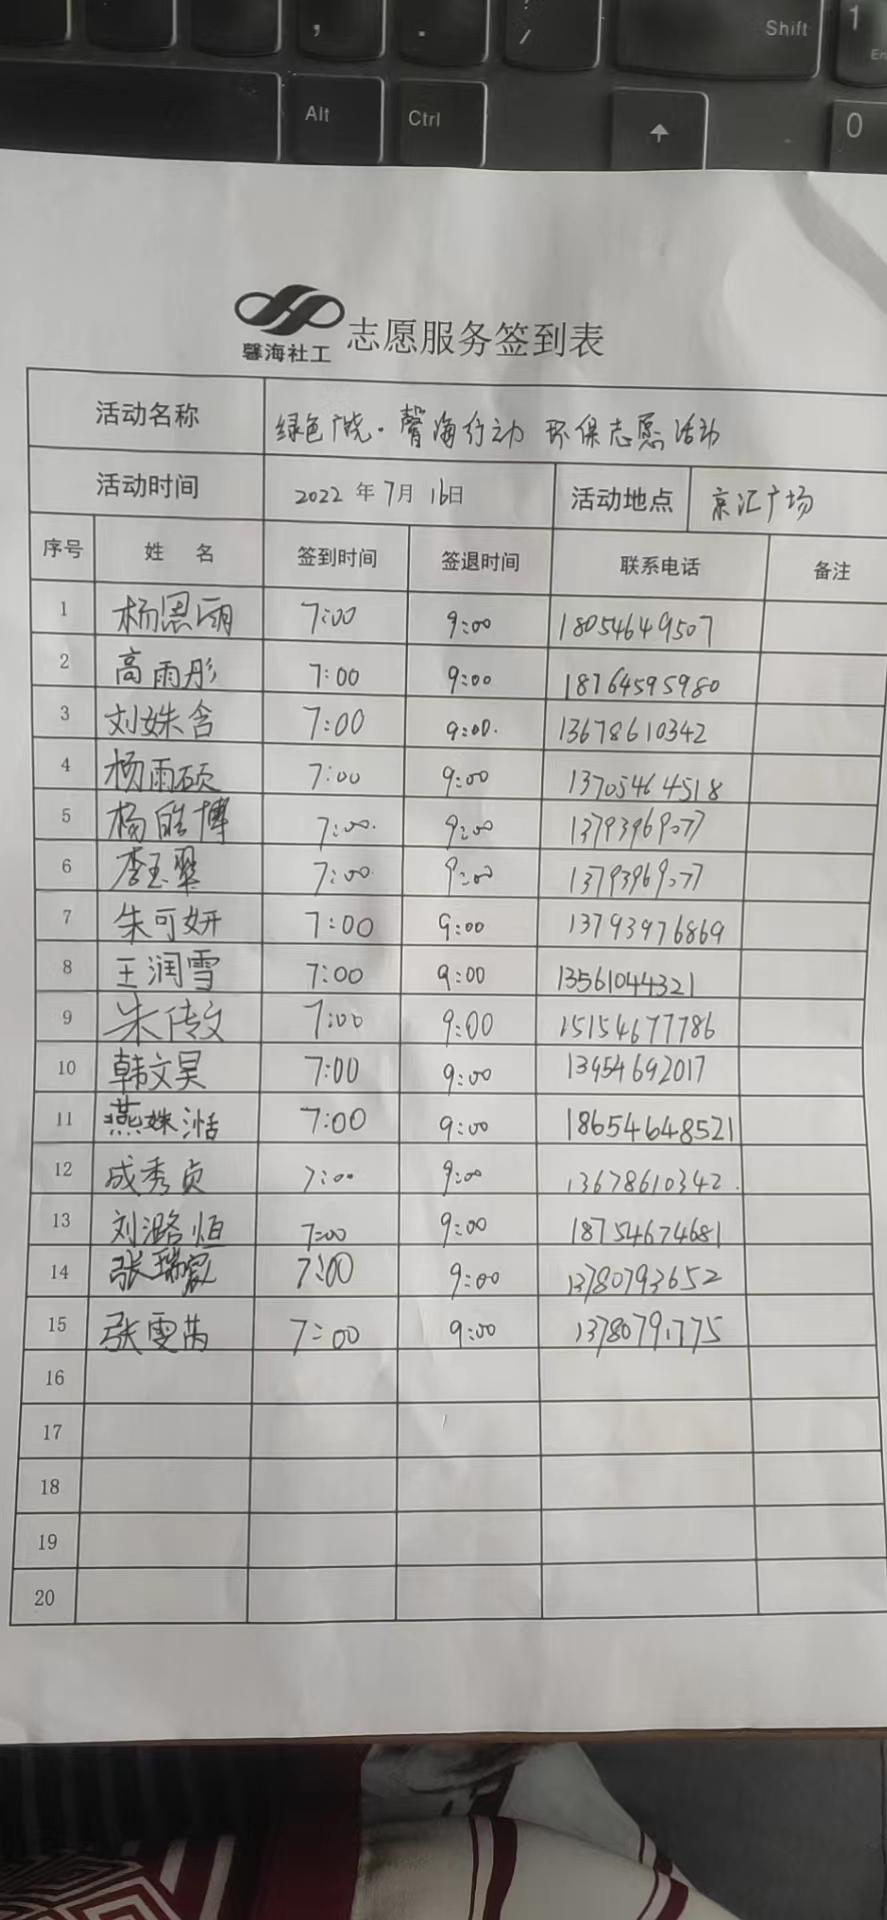 , . ? / Shift 1 En
Alt Ctrl 0
馨海社工 志愿服务签到表
活动名称 绿色广饶·馨海行动 环保志愿活动
活动时间 2022 年 7月 16日 活动地点 京汇广场
序号 姓 名 签到时间 签退时间 联系电话 备注
1 杨恩雨 7:00 9:00 18054649507
2 高雨彤 7:00 9:00 18764595980
3 刘姝含 7:00 9:00. 13678610342
4 杨雨硕 7:00 9:00 13705464518
5 杨皓博 7:00. 9:00 13793969077
6 李玉翠 7:00. 9:00 13793969077
7 朱可妍 7:00 9:00 13793976869
8 王润雪 7:00 9:00 13561044321
9 朱传文 7:00 9:00 15154677786
10 韩文昊 7:00 9:00 13454692017
11 燕姝湉 7:00 9:00 18654648521
12 成秀贞 7:00 9:00 13678610342.
13 刘潞恒 7:00 9:00 18754674681
14 张瑞宸 7:00 9:00 13780793652
15 张雯芮 7:00 9:00 13780791775
16
17
18
19
20